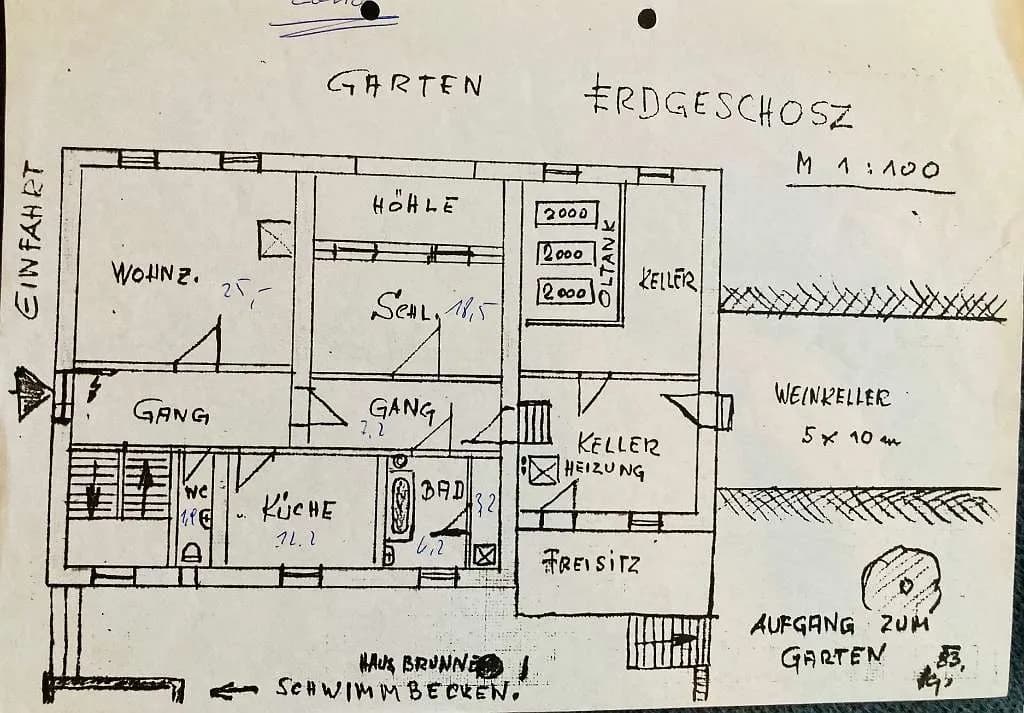 GARTEN
ERDGESCHOSZ
M 1:100
EINFAHRT
HÖHLE
2000
2000
2000
ÖLTANK
KELLER
WOHNZ.
25,-
SCHL. 18,5
GANG
GANG
7,2
WEINKELLER
5 x 10 m
KELLER
HEIZUNG
WC
KÜCHE
12.2
BAD
6,2
3,2
FREISITZ
AUFGANG ZUM
GARTEN
83.
HAUSBRUNNEN
SCHWIMMBECKEN.